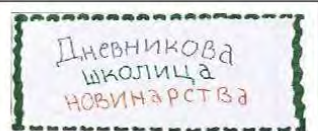 Дневникова
школица
новинарства